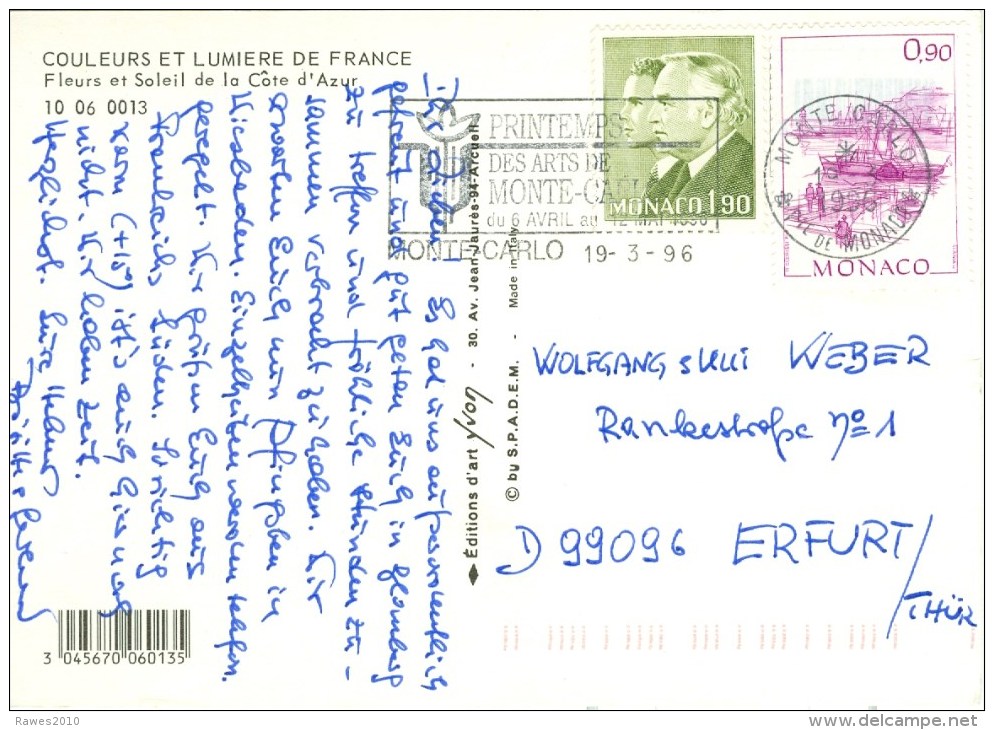 COULEURS ET LUMIERE DE FRANCE
Fleurs et Soleil de la Côte d'Azur
10 06 0013
PRINTEMPS
DES ARTS DE
MONTE-CARLO
du 6 AVRIL au 12 MAI 1996
MONTE-CARLO 19-3-96
MONACO 1,90
0,90
MONACO
MONTE CARLO
1996
Pte DE MONACO
Ihr Lieben! Es hat uns außerordentlich
gefreut und gut getan Euch in
zu treffen und fröhliche Stunden zu-
sammen verbracht zu haben. Wir
erwarten Euch nun Pfingsten in
Wiesbaden. Einzelheiten werden telefon.
geregelt. Wir grüßen Euch aus
Frankreichs Süden. So richtig
warm (+15°) ist's auch hier noch
nicht. Wir haben Zeit.
Herzlichst. Eure Helmut
◆ Éditions d'art yvon - 30. Av. Jean Jaurès-94-Arcueil
© by S.P.A.D.E.M. - Made in Italy
WOLFGANG & ULLI WEBER
Rankestraße No 1
D 99096 ERFURT/
THÜR
3 045670 060135
Rawes2010
delcampe.net